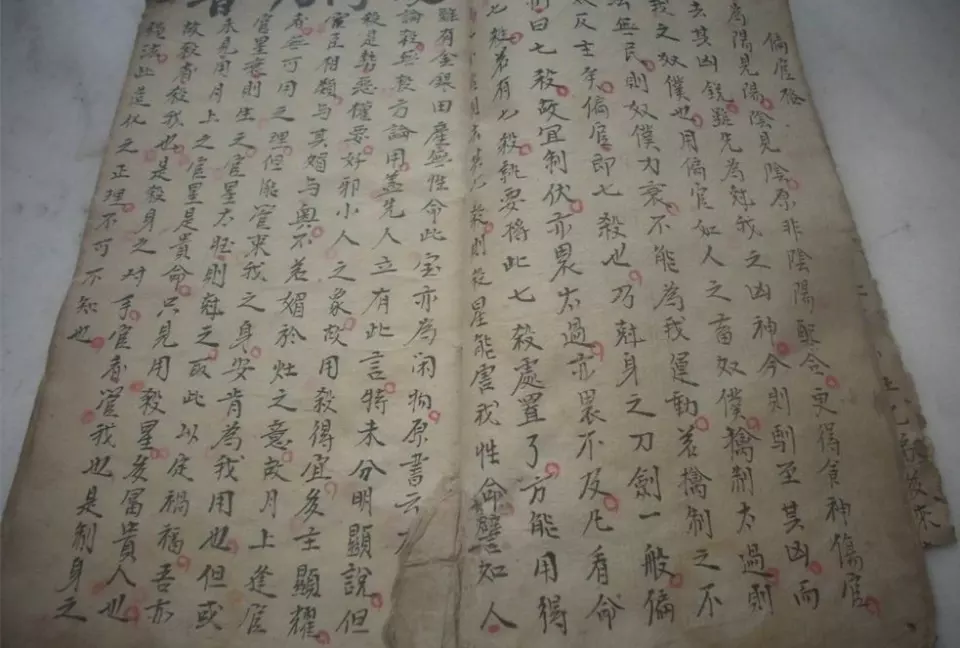 偏官格
為陽見陽陰見陰原非陰陽配合更得食神傷官
去其凶銳雖先為尅我之凶神今則馴至其凶而
我之奴僕也用偏官如人之畜奴僕擒制太過則
法無民則奴僕力衰不能為我運動若擒制之不
反主偏官即七殺也乃尅身之刀劍一般偏
曰七殺故宜制伏亦畏太過亦畏不及凡看命
七殺若有七殺就要將此七殺處置了方能用得
則殺星能害我性命譬如人
雖有金銀田產無性命此宝亦為闲物原書云
論殺無殺方論用盖先人立有此言特未分明顯說但
殺是勢惡權要好邪小人之象故用殺得宜多主顯耀
官正相類与其媚与奥不若媚於灶之意故月上逢官
者無可用之理但能管束我之身安肯為我用也但或
官星衰則生之官星太旺則尅之取此以定禍福吾亦
未見用月上之官星是貴命只見用殺星多冨貴人也
故殺者殺我也是殺身之对手官者管我也是制身之
繩法此造化之正理不可不知也